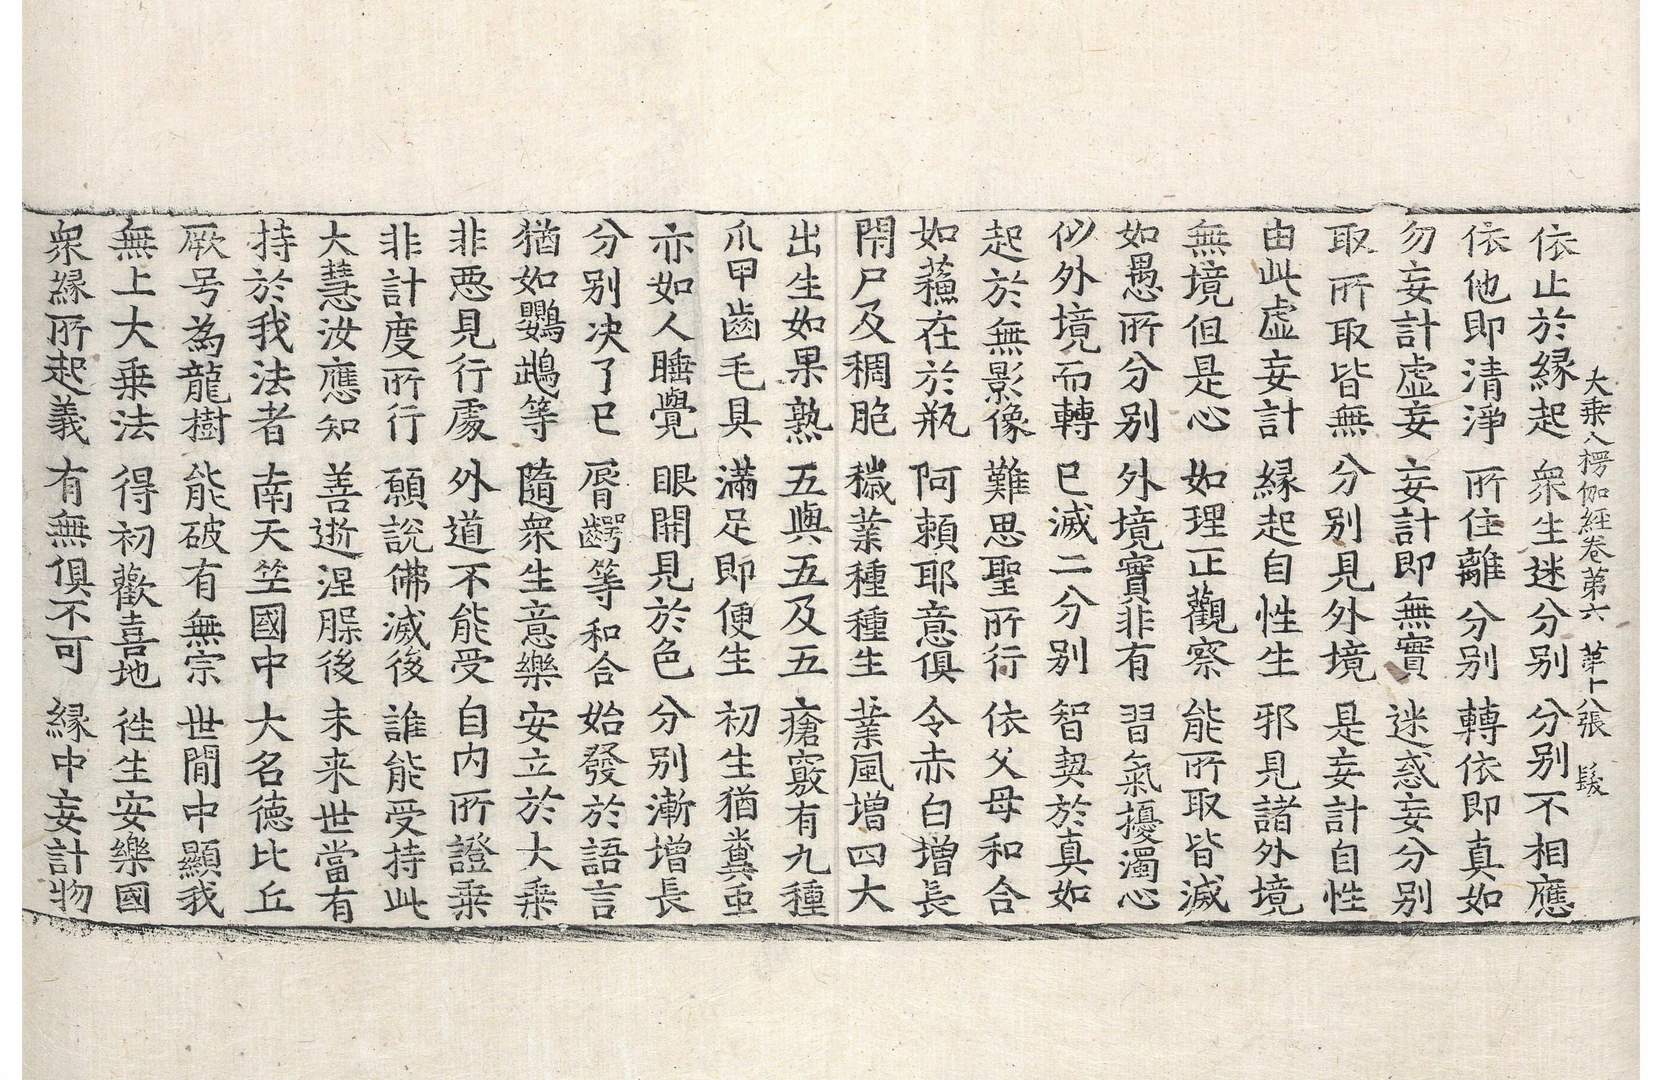 大乗入楞伽經卷第六 第十八張 髮
依止於縁起 衆生迷分別 分別不相應
依他即清淨 所住離分別 轉依即真如
勿妄計虛妄 妄計即無實 迷惑妄分別
取所取皆無 分別見外境 是妄計自性
由此虛妄計 縁起自性生 邪見諸外境
無境但是心 如理正觀察 能所取皆滅
如愚所分別 外境實非有 習氣擾濁心
似外境而轉 已滅二分別 智契於真如
起於無影像 難思聖所行 依父母和合
如蘓在於瓶 阿賴耶意俱 令赤白增長
閇尸及稠胞 穢業種種生 業風增四大
出生如果熟 五與五及五 瘡竅有九種
爪甲齒毛具 滿足即便生 初生猶糞虫
亦如人睡覺 眼開見於色 分別漸增長
分別决了已 脣齶等和合 始發於語言
猶如鸚鵡等 隨衆生意樂 安立於大乗
非惡見行處 外道不能受 自内所證乗
非計度所行 願說佛滅後 誰能受持此
大慧汝應知 善逝涅槃後 未来世當有
持於我法者 南天竺國中 大名德比丘
厥号為龍樹 能破有無宗 世間中顯我
無上大乗法 得初歡喜地 徃生安樂國
衆縁所起義 有無俱不可 縁中妄計物